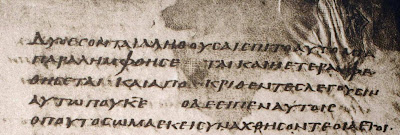 ΔΥΟ ΕCΟΝΤΑΙ ΑΛΗΘΟΥCΑΙ ΕΠΙ ΤΟ ΑΥΤΟ ΜΙΑ
ΠΑΡΑΛΗΜΦΘΗCΕΤΑΙ ΚΑΙ Η ΕΤΕΡΑ ΑΦΕ
ΘΗCΕΤΑΙ ΚΑΙ ΑΠΟΚΡΙΘΕΝΤΕC ΛΕΓΟΥCΙΝ
ΑΥΤΩ ΠΟΥ ΚΕ Ο ΔΕ ΕΙΠΕΝ ΑΥΤΟΙC
ΟΠΟΥ ΤΟ CΩΜΑ ΕΚΕΙ CΥΝΑΧΘΗCΟΝΤΕ ΟΙ ΑΕΤΟΙ·